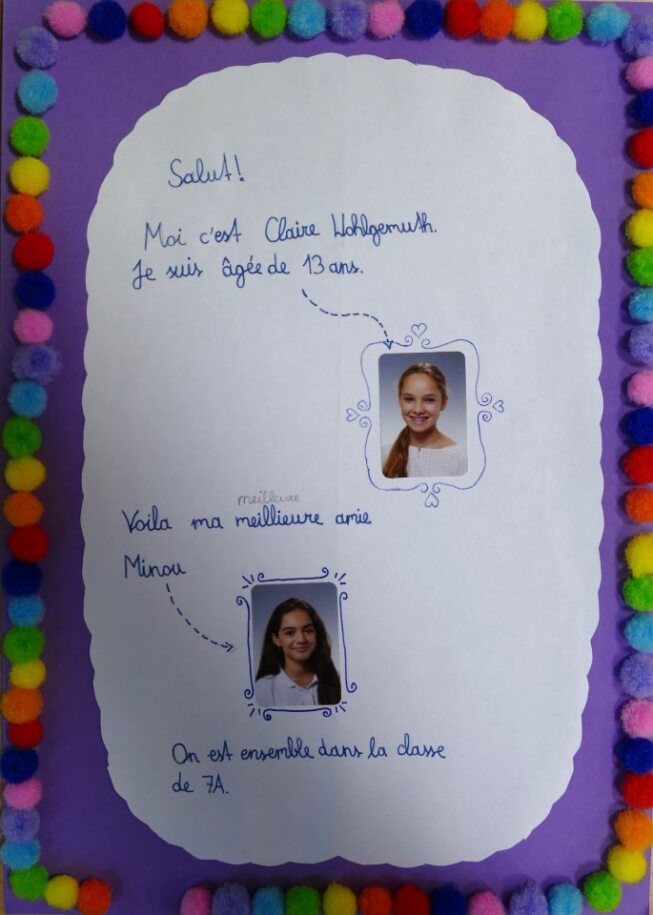 Salut!
Moi c'est Claire Wohlgemuth.
Je suis âgée de 13 ans.
meilleure
Voila ma meillieure amie
Minou
On est ensemble dans la classe
de 7A.